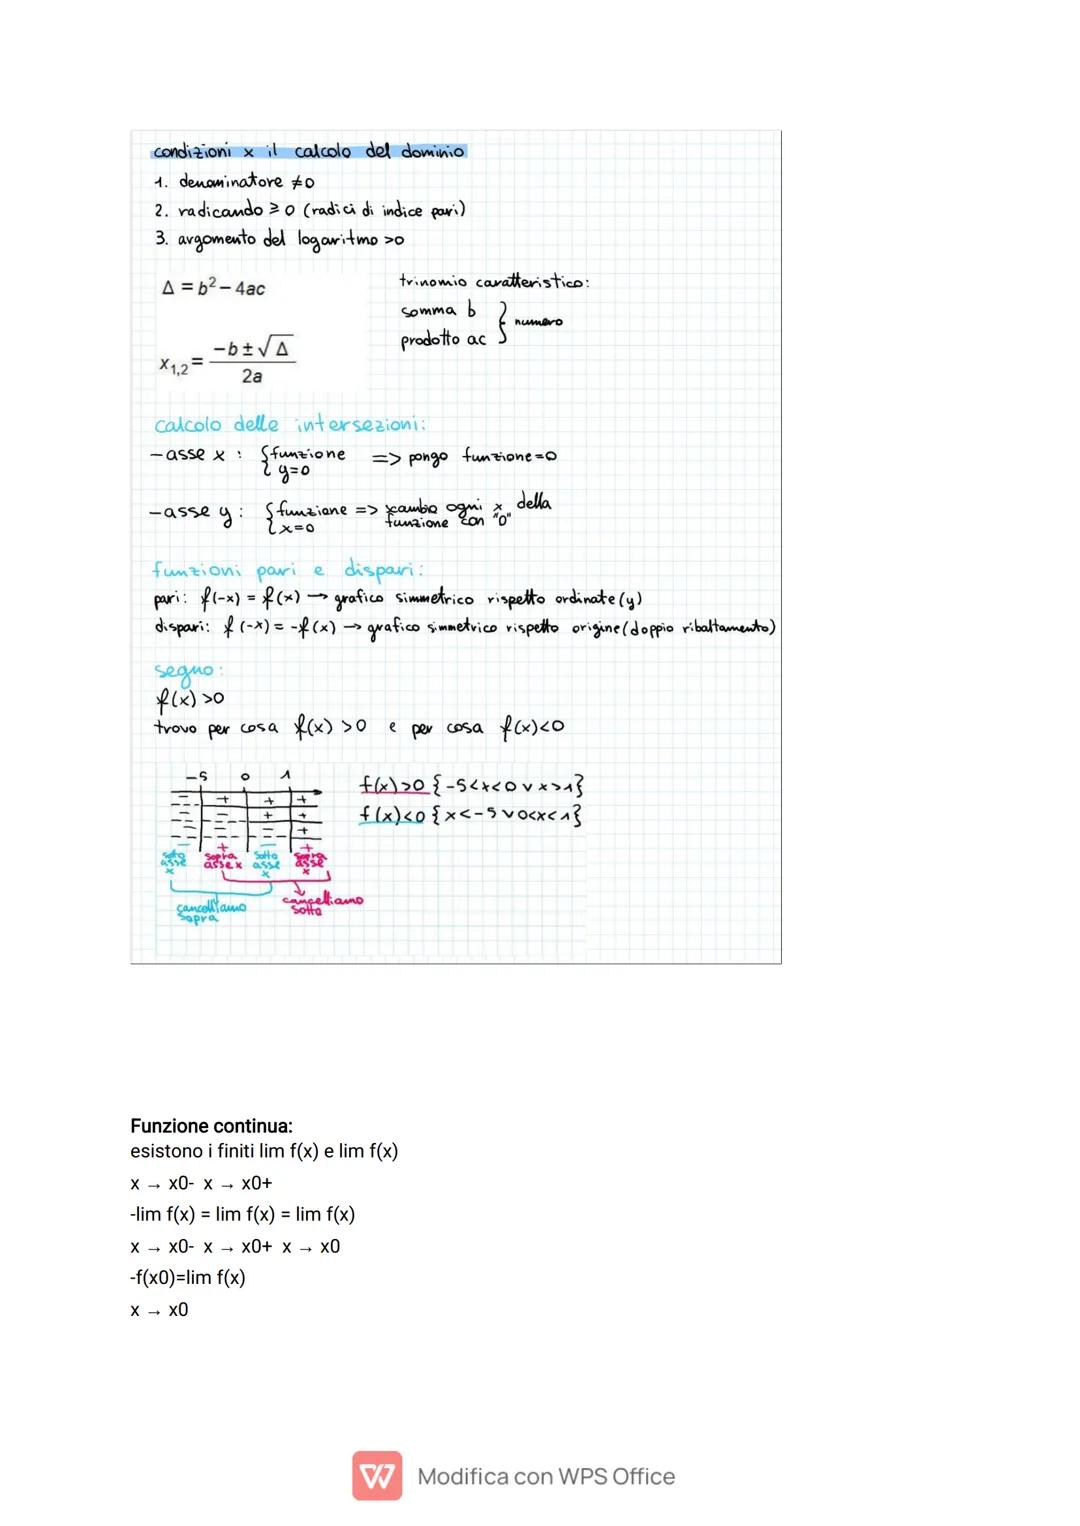 condizioni x il calcolo del dominio
1. denominatore ≠0
2. radicando ≥0 (radici di indice pari)
3. argomento del logaritmo >0
Δ = b² − 4ac
trinomio caratteristico:
somma b
prodotto ac } numero
x1,2 = (−b ± √Δ) / 2a
calcolo delle intersezioni:
-asse x : {funzione y=0 => pongo funzione=0
-asse y : {funzione x=0 => scambio ogni x della
funzione con "0"
funzioni pari e dispari:
pari: f(-x) = f(x) → grafico simmetrico rispetto ordinate(y)
dispari: f(-x) = -f(x) → grafico simmetrico rispetto origine(doppio ribaltamento)
segno:
f(x) >0
trovo per cosa f(x) >0 e per cosa f(x)<0
-5 0 1
f(x)>0 {-5<x<0 ∨ x>1}
f(x)<0 {x<-5 ∨ 0<x<1}
- + + +
- - + +
- - - +
- + - +
sotto asse x
sopra asse x
sotto asse x
sopra asse x
cancelliamo sopra
cancelliamo sotto
Funzione continua:
esistono i finiti lim f(x) e lim f(x)
x → x0- x → x0+
-lim f(x) = lim f(x) = lim f(x)
x → x0- x → x0+ x → x0
-f(x0)=lim f(x)
x → x0
Modifica con WPS Office